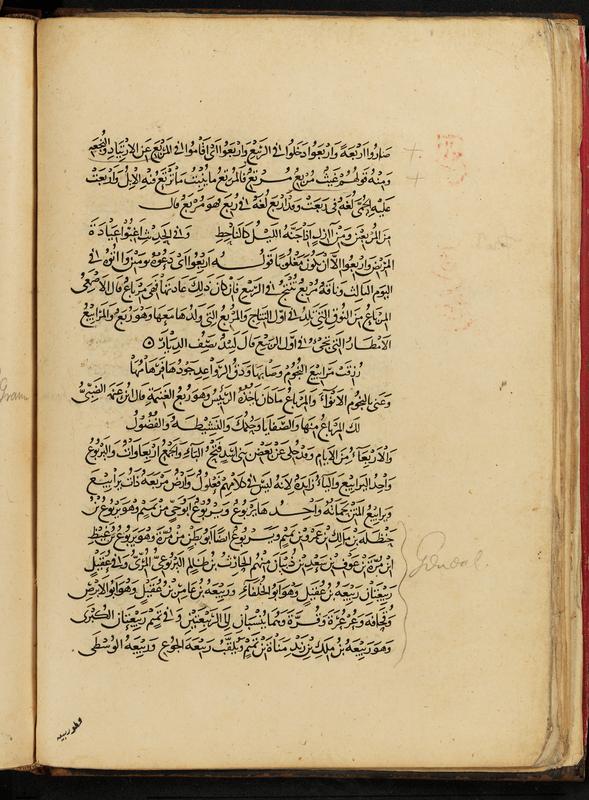 صاروا اربعة واربعوا دخلوا في الربيع واربعوا اي اقاموا في المربع عن الارتياد والنجعه
ومنه قولهم غيث مربع مرتع فالمربع ما ينبت ما ترتع فيه الابل واربعت
عليه الحمى لغة في ربعت وقد اربع لغة في ربع فهو مربع قال
من المربعين ومن آزل اذا جنه الليل كالناحط وفي الحديث اغبوا عيادة
المريض واربعوا الا ان يكون مغلوبا قوله اربعوا اي دعوه يومين واتوه في
اليوم الثالث وناقة مربع تنتج في الربيع فان كان ذلك عادتها فهي مرباع قال الاصمعي
المرباع من النوق التي تلد في اول النتاج والمربع التي ولدها معها وهو ربع والمرابيع
الامطار التي تجيء في اول الربيع قال لبيد يصف الديار
رزقت مرابيع النجوم وصابها ودق الرواعد جودها فرهامها
وعنى بالنجوم الانواء والمرباع ما كان ياخذه الرئيس وهو ربع الغنيمة قال ابن عنمة الضبي
لك المرباع منها والصفايا وحكمك والنشيطة والفضول
والاربعاء من الايام وقد حكي عن بعض بني اسد فتح الباء والجمع اربعاوات واليربوع
واحد اليرابيع والياء زائدة لانه ليس في كلامهم فعلول وارض مربعة ذات يرابيع
ويرابيع المتن لحماته واحدها يربوع ويربوع ابو حي من تميم وهو يربوع بن
حنظلة بن مالك بن عمرو بن تميم ويربوع ايضا ابو بطن من مرة وهو يربوع بن غيظ
ابن مرة بن عوف بن سعد بن ذبيان منهم الحارث بن ظالم اليربوعي المري وفي عقيل
ربيعتان ربيعة بن عقيل وهو ابو الخلفاء وربيعة بن عامر بن عقيل وهو ابو الابرص
وقحافة وعرعرة وقرة وهما ينسبان الى الربيعتين وفي تميم ربيعتان الكبرى
وهو ربيعة بن ملك بن زيد مناة بن تميم ويلقب ربيعة الجوع وربيعة الوسطى
وهو ربيعه
Geneal.
Gram